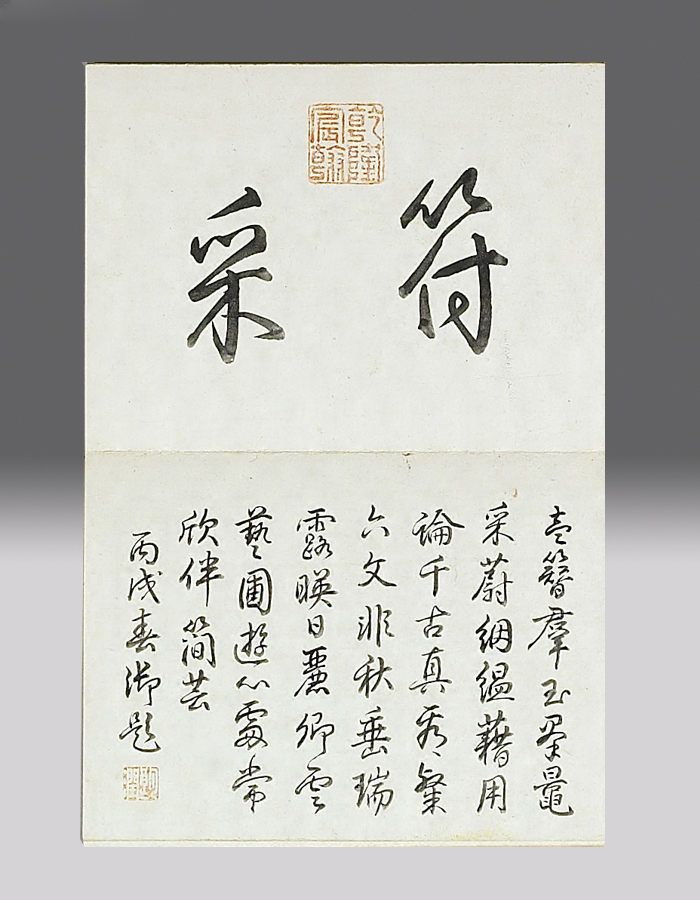 乾隆宸翰
符采
盍簪羣玉聚鼂
采蔚絪縕藉用
論千古真看粲
六文非秋垂瑞
露暎日麗卿雲
藝圃遊心處常
欣伴簡芸
丙戌春御題